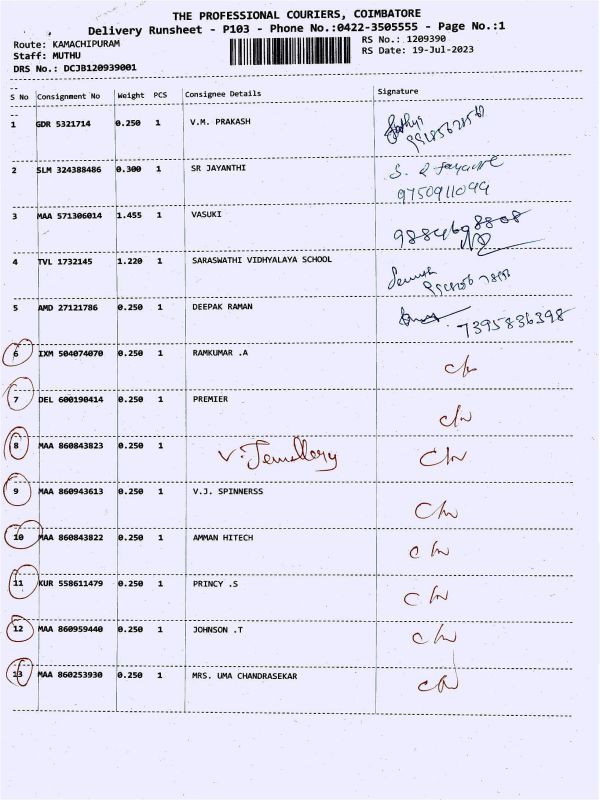 THE PROFESSIONAL COURIERS, COIMBATORE
Delivery Runsheet - P103 - Phone No.:0422-3505555 - Page No.:1
Route: KAMACHIPURAM RS No.: 1209390
Staff: MUTHU RS Date: 19-Jul-2023
DRS No.: DCJB120939001
S No Consignment No Weight PCS Consignee Details Signature
1 GDR 5321714 0.250 1 V.M. PRAKASH
2 SLM 324388486 0.300 1 SR JAYANTHI
9750911099
3 MAA 571306014 1.455 1 VASUKI 9884698808
4 TVL 1732145 1.220 1 SARASWATHI VIDHYALAYA SCHOOL
5 AMD 27121786 0.250 1 DEEPAK RAMAN 7395836398
6 IXM 504074070 0.250 1 RAMKUMAR .A c/n
7 DEL 600190414 0.250 1 PREMIER c/n
8 MAA 860843823 0.250 1 V. Jewellery c/n
9 MAA 860943613 0.250 1 V.J. SPINNERSS c/n
10 MAA 860843822 0.250 1 AMMAN HITECH c/n
11 KUR 558611479 0.250 1 PRINCY .S c/n
12 MAA 860959440 0.250 1 JOHNSON .T c/n
13 MAA 860253930 0.250 1 MRS. UMA CHANDRASEKAR c/n